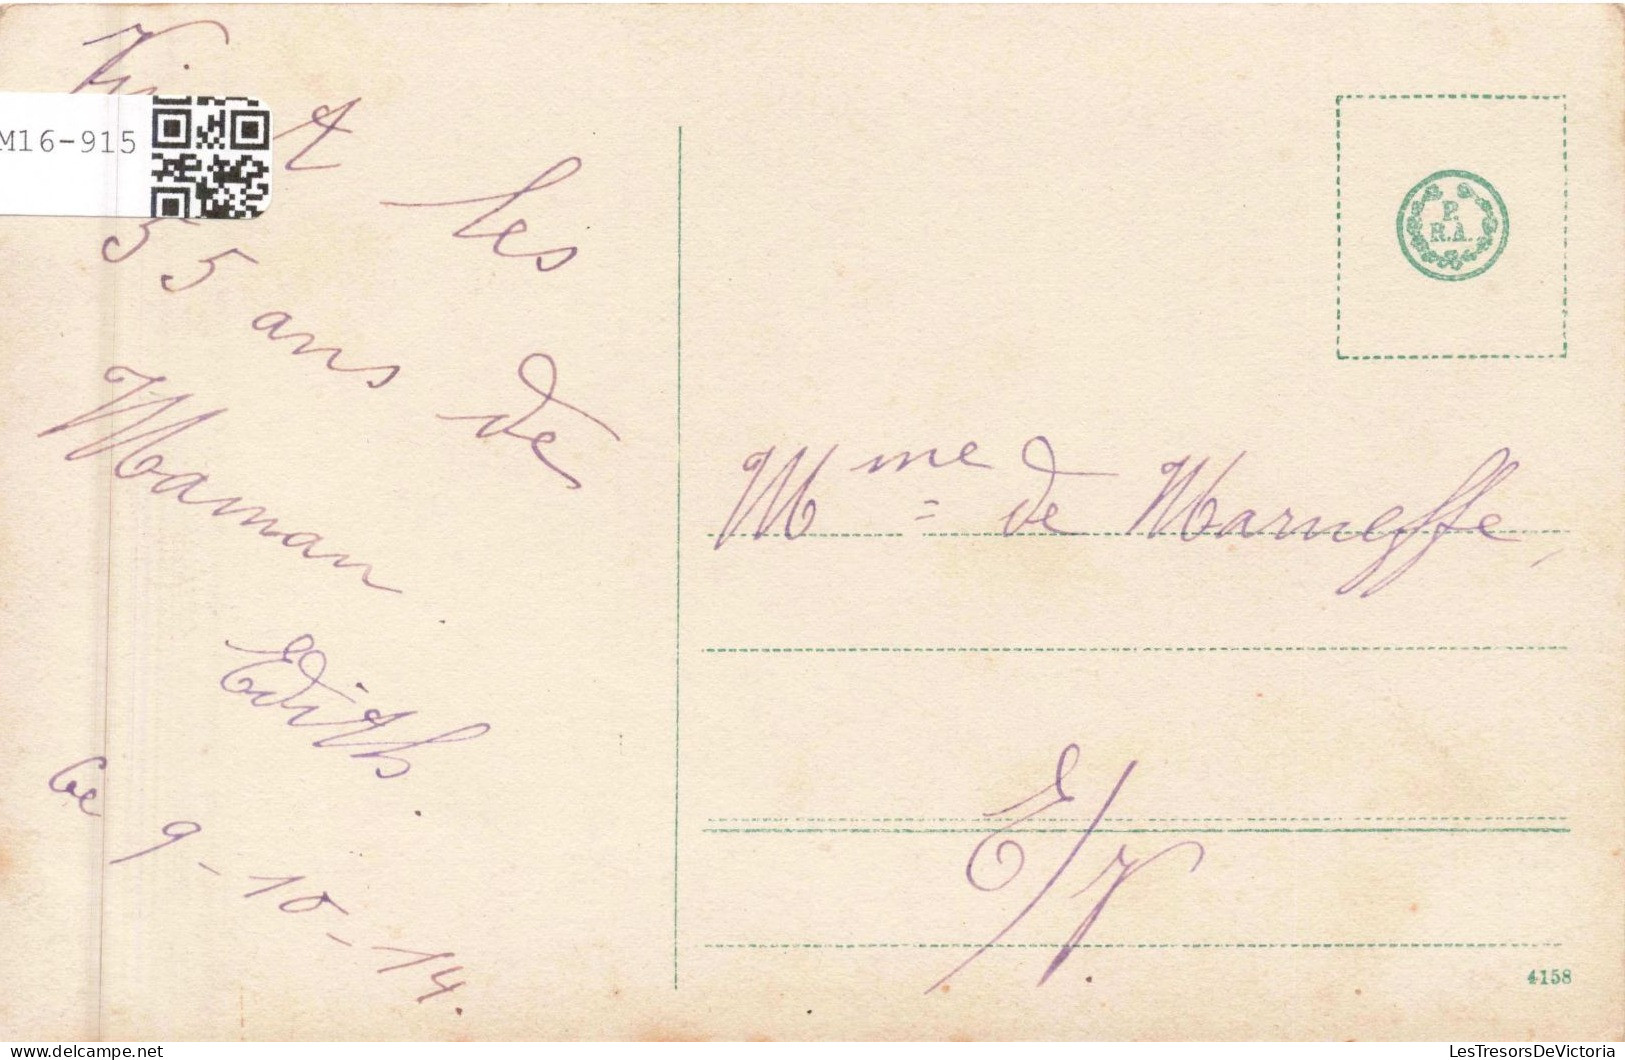 M16-915
les
55 ans de
Maman
Edith.
Ce 9-10-14.
P.
R.A.
Mme de Marneffe,
E/V.
4158
LesTresorsDeVictoria
delcampe.net